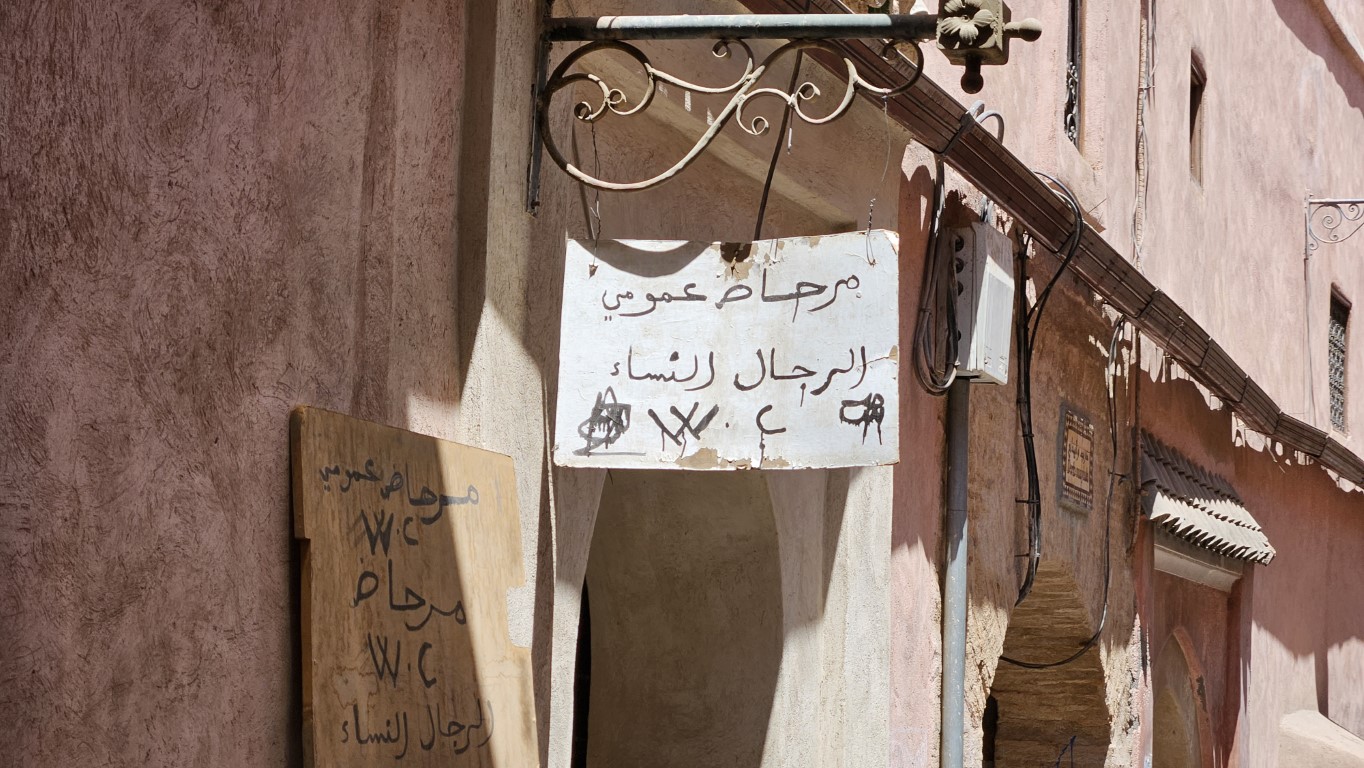 مرحاض عمومي
الرجال النساء
W.C
مرحاض عمومي
W.C
مرحاض
W.C
الرجال النساء